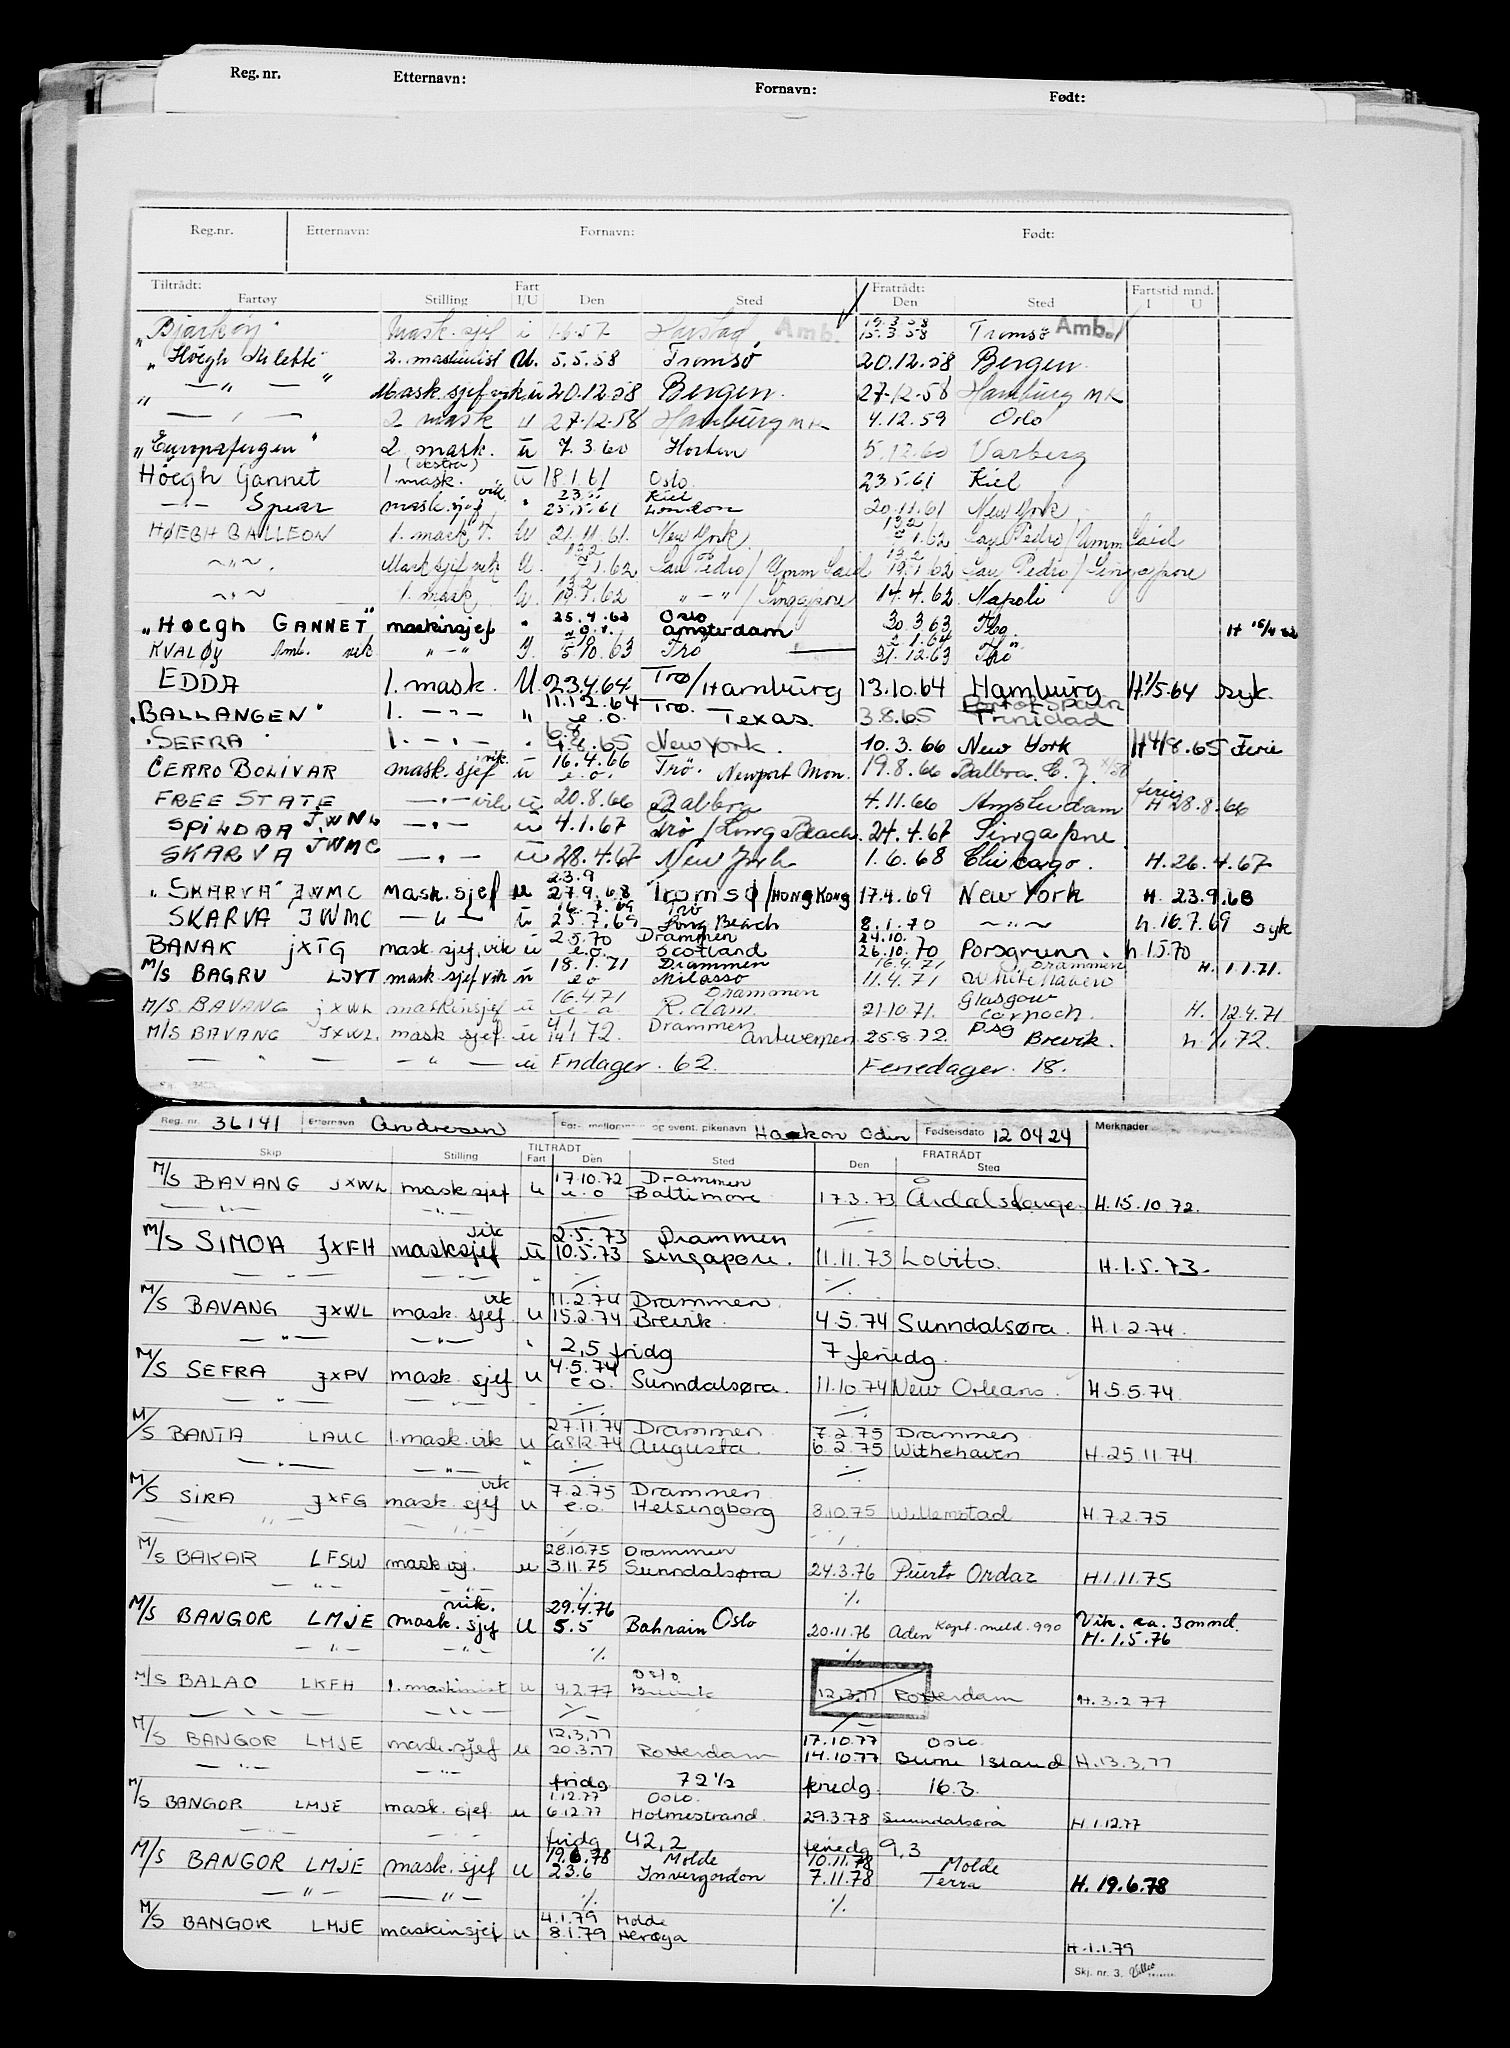 Reg. nr. Etternavn: Fornavn: Født:
Reg.nr. Etternavn: Fornavn: Født:
Tiltrådt: Fratrådt: Fartstid mnd.
Fartøy Stilling Fart I/U Den Sted Den Sted I U
"Bjarkøy" Mask. sjef i 1.6.57 Amb. 19.3.58 15.3.58 Tromsö Amb.
"Höegh 2. maskinist U. 5.5.58 Tromsö 20.12.58 Bergen
" — " — " Mask sjef vik u 20.12.58 Bergen. 27-12-58 Hamburg MK
— " — 2 mask u 27-12-58 Hamburg MK 4.12.59 Oslo
"Europafergen" 2 mask. u 7.3.60 Horten 5.12.60 Varberg
Höegh Gannet 1. mask. (ekstra) u 18.1.61 Oslo. 23.5.61 Kiel
—"— Spear mask. sjef vik " 23.5. 25.5.61 Kiel London 20.11.61 New York
HØEGH GALLEON 1. mask. U 21.11.61. New York 13.2 1.62 San Pedro/Umm Said
~"~. Mask sjef vik U. 13.2 1.62 San Pedro/Umm Said 13.2 19.1.62 San Pedro/Singapore
~"~ 1. mask U. 13.2 19.1.62 "—"/Singapore 14.4.62 Napoli
"Høegh GANNET" maskinsjef " 25.4.62 Oslo Amsterdam 30.3.63
KVALØY Amb. vik "—" I. 5/10.63 Trö — 1.64 31.12.63 Trö
EDDA 1. mask. U. 23.4.64 Trø/Hamburg 13.10.64 Hamburg H 1/5.64 syk.
"BALLANGEN" 1. —"— " 11.12.64 e.o. Trø. Texas. 3.8.65 Port of Spain Trinidad
"SEFRA" 1. —"— " 6.8 9.8.65 New York. 10.3.66 New York H 4/8.65 Ferie
CERRO BOLIVAR mask. sjef vik. u 16.4.66 e.o. Trö. Newport Mon. 19.8.66 Balboa C.Z.
FREE STATE —"— vik u 20.8.66 Balboa 4.11.66 Amsterdam ferie H 28.8.66
SPINDAA JWNG —"— u 4.1.67 Trö/Long Beach. 24.4.67 Singapore
SKARVA JWMC —"— u 28.4.67 New York 1.6.68 Chicago. H. 26.4.67
"SKARVA" JWMC Mask. sjef u 23.9 27.9.68 Tromsø/HONG KONG 17.4.69 New York H. 23.9.68
SKARVA JWMC —"— u 16.7.69 25.7.69 Trö Long Beach 8.1.70 ~"~ h. 16.7.69 syk
BANAK JXTG mask. sjef. vik u 2.5.70 e.o. Drammen Scotland 24.10. 26.10.70 Porsgrunn. h 1.5.70
M/S BAGRU LJYT mask. sjef. vik u 18.1.71 e.o Drammen Milasso 16.4.71 11.4.71 Drammen Whitehaven H. 1.1.71.
M/S BAVANG JXWL maskinsjef u 16.4.71 e. o. Drammen R.dam. 21.10.71. Glasgow Corpach. H. 12.4.71
M/S BAVANG JXWL. mask sjef. u 4/1 14/1 72. Drammen Antwerpen 25.8.72. Psg Brevik. h 1/1.72.
— " — — " — u Fridager. 62. Feriedager. 18.
Reg. nr. 36141 Etternavn Andresen For-, mellomnavn og event. pikenavn Haakon Odin Fødselsdato 12 04 24 Merknader
TILTRÅDT FRATRÅDT
Skip Stilling Fart Den Sted Den Sted
M/S BAVANG JXWL mask sjef u 17.10.72 e. o Drammen Baltimore 17.3.73 Årdalstange. H. 15.10.72.
— " — — " — ./. ./.
M/S SIMOA JXFH mask sjef vik u 2.5.73 10.5.73 Drammen Singapore. 11.11.73 Lobito. H. 1.5.73.
— " — — " — " ./. ./.
M/S BAVANG JXWL mask. sjef. vik u 11.2.74 15.2.74 Drammen Brevik. 4.5.74 Sunndalsøra. H. 1.2.74.
— " — — " — " 2,5 fridg 7 feriedg.
M/S SEFRA JXPV mask. sjef u 4.5.74 e.o. Sunndalsøra. 11.10.74 New Orleans. H. 5.5.74.
— " — — " — ./. ./.
M/S BANTA LAUC 1. mask. vik u 27.11.74 ca 8.12.74 Drammen Augusta. 7.2.75 6.2.75 Drammen Withehaven H. 25.11.74
— " — — " — " ./. ./.
M/S SIRA JXFG mask. sjef vik u 7.2.75 e.o. Drammen Helsingborg 3.10.75 Willemstad H. 7.2.75
— " — — " — ./. ./.
M/S BAKAR LFSW mask. sj. u 28.10.75 3.11.75 Drammen Sunndalsøra 24.3.76 Puerto Ordaz H. 1.11.75
— " — — " — ./. ./.
M/S BANGOR LMJE mask. sjef vik. u 29.4.76 5.5 Bahrain Oslo 20.11.76 Aden Kapt. meld. 990 Vik. ca. 3 mnd. H. 1.5.76
— " — — " — ./. ./.
M/S BALAO LKFH 1. maskinist u 4.2.77 Oslo Brevik 12.3.77 Rotterdam H. 3.2.77
— " — — " — ./. ./.
M/S BANGOR LMJE mask. sjef u 12.3.77 20.3.77 Rotterdam 17.10.77 14.10.77 Oslo Island H. 13.3.77
— " — — " — fridg 72 1/2 feriedg. 16.3.
M/S BANGOR LMJE mask. sjef. u 1.12.77 6.12.77 Oslo. Holmestrand. 29.3.78 Sunndalsøra H. 1.12.77
— " — — " — fridg 42,2 feriedg 9,3
M/S BANGOR LMJE mask. sjef u 19.6.78 23.6 Molde Invergordon 10.11.78 7.11.78 Molde Terra H. 19.6.78
— " — — " — ./. ./.
M/S BANGOR LMJE maskinsjef u 4.1.79 8.1.79 Molde Herøya H. 1.1.79
Skj. nr. 3.